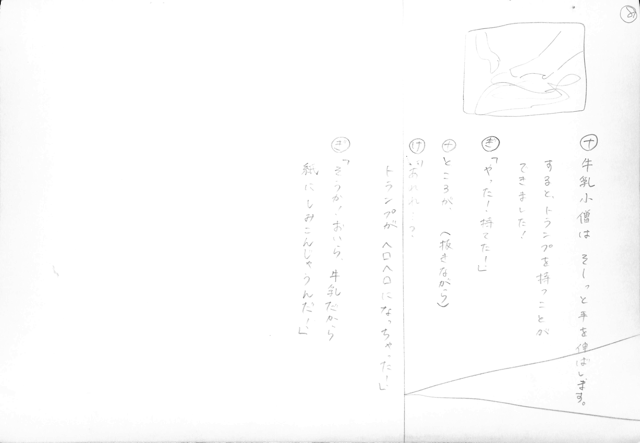 ⑧
ナ 牛乳小僧は そーっと手を伸ばします。
すると、トランプを持つことが
できました!
ぎ 「やった!持てた!」
ナ ところが、(抜きながら)
トランプが ヘロヘロになっちゃった!」
ぎ 「そうか!おいら、牛乳だから
紙にしみこんじゃうんだ!」